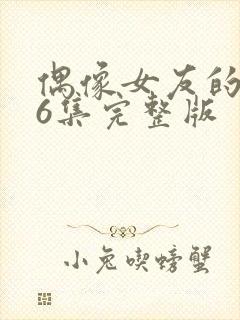 偶像女友的
6集完整版
小兔喫螃蟹